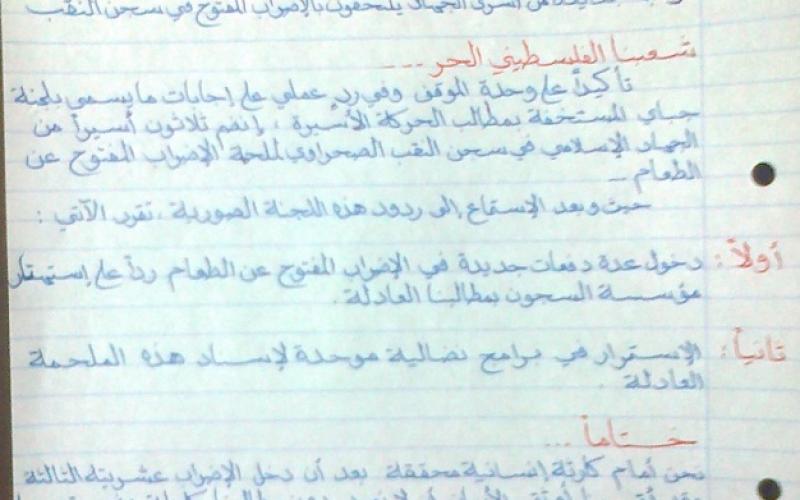 من أسرى الجهاد يلتحقون بالإضراب المفتوح في سجن النقب
شعبنا الفلسطيني الحر ...
تأكيداً على وحدة الموقف وفي رد عملي على إجابات ما يسمى بلجنة
جباي المستخفة بمطالب الحركة الأسيرة ، إنضم ثلاثون أسيراً من
الجهاد الإسلامي في سجن النقب الصحراوي لملحمة الإضراب المفتوح عن
الطعام ـ
حيث وبعد الإستماع إلى ردود هذه اللجنة الصورية ، تقرر الآتي :
أولاً : دخول عدة دفعات جديدة في الإضراب المفتوح عن الطعام رداً على إستهتار
مؤسسة السجون بمطالبنا العادلة .
ثانياً : الإستمرار في برامج نضالية موحدة لإسناد هذه الملحمة
العادلة .
ختاماً ...
نحن أمام كارثة إنسانية محققة بعد أن دخل الإضراب عشريته الثالثة